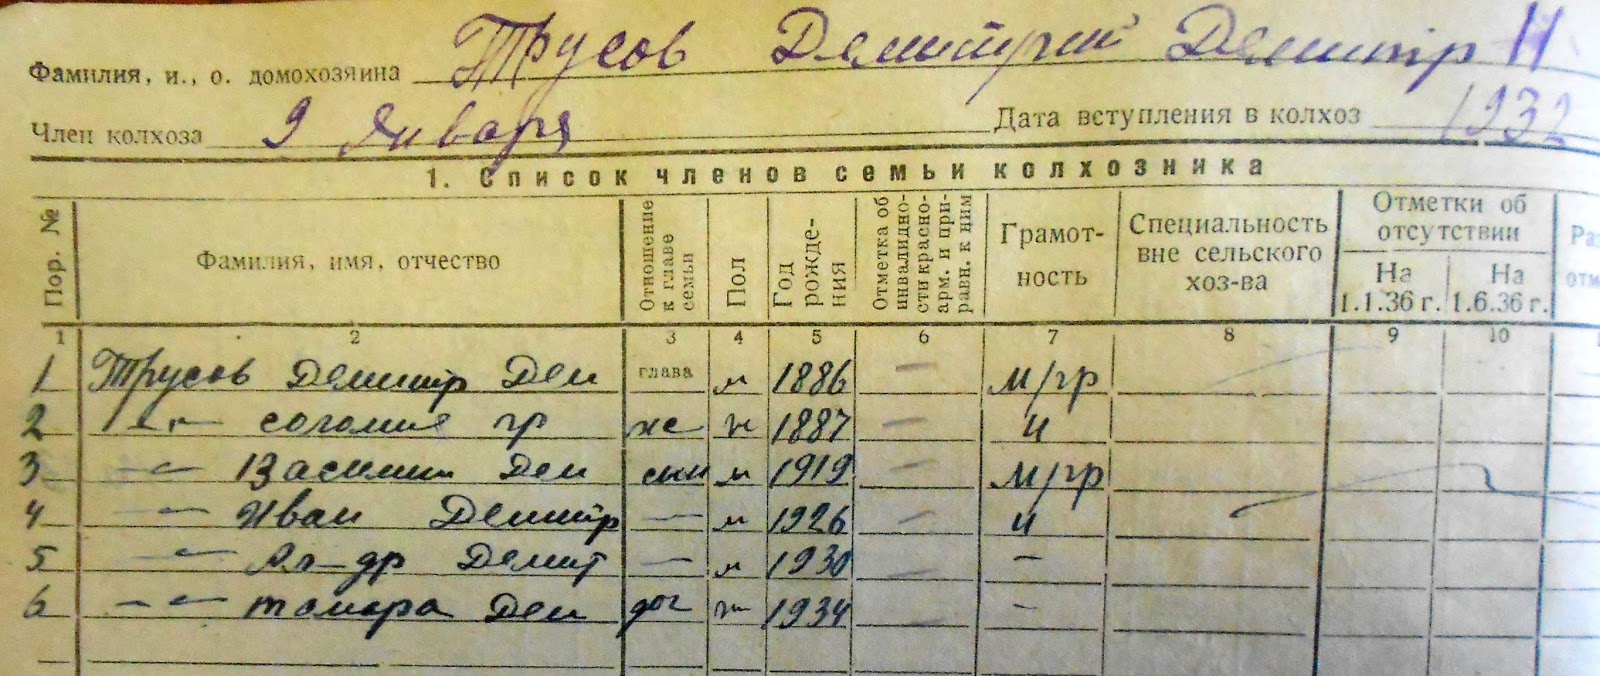 Фамилия, и., о. домохозяина Трусов Демитрий Демитр 11
Член колхоза 9 Января Дата вступления в колхоз 1932
1. Список членов семьи колхозника
Пор. № Фамилия, имя, отчество Отношение к главе семьи Пол Год рожде-ния Отметка об инвалидно-сти красно-арм. и при-равн. к ним Грамот-ность Специальность вне сельского хоз-ва Отметки об отсутствии На 1.1.36 г. На 1.6.36 г.
1 2 3 4 5 6 7 8 9 10
1 Трусов Демитр Дем глава м 1886 — м/гр
2 —"— соломия гр же ж 1887 — н
3 —"— Василий Дем сын м 1919 — м/гр
4 —"— Иван Демитр — м 1926 — н
5 —"— Ал-др Демит — м 1930 — —
6 —"— тамара Дем доч ж 1934 — —